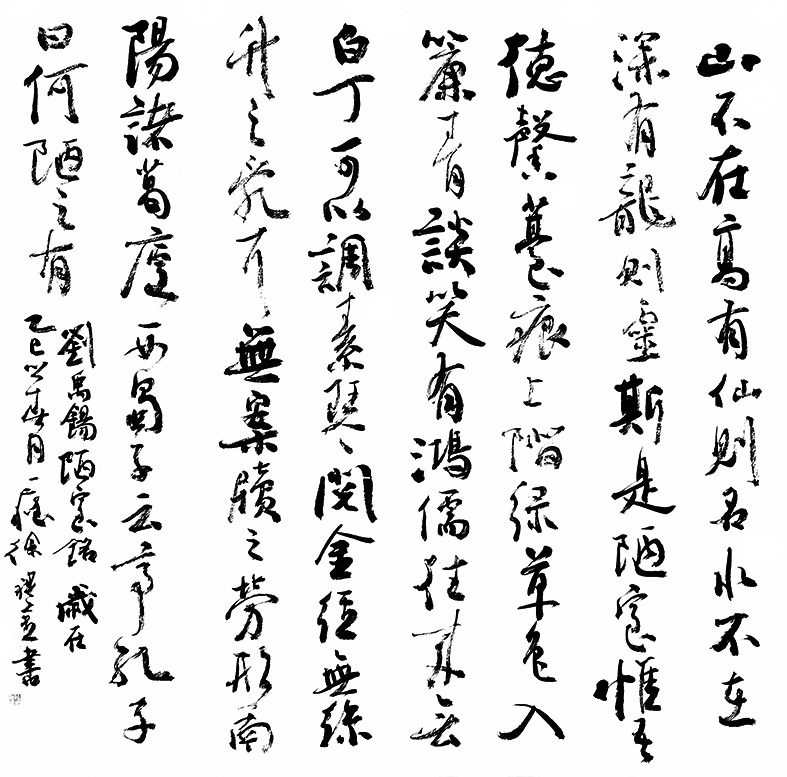 山不在高有仙則名水不在
深有龍則靈斯是陋室惟吾
德馨苔痕上階綠草色入
簾青談笑有鴻儒往來無
白丁可以調素琴閱金經無絲
竹之亂耳無案牘之勞形南
陽諸葛廬西蜀子云亭孔子
曰何陋之有
劉禹錫陋室銘歲在
乙巳春月徐書